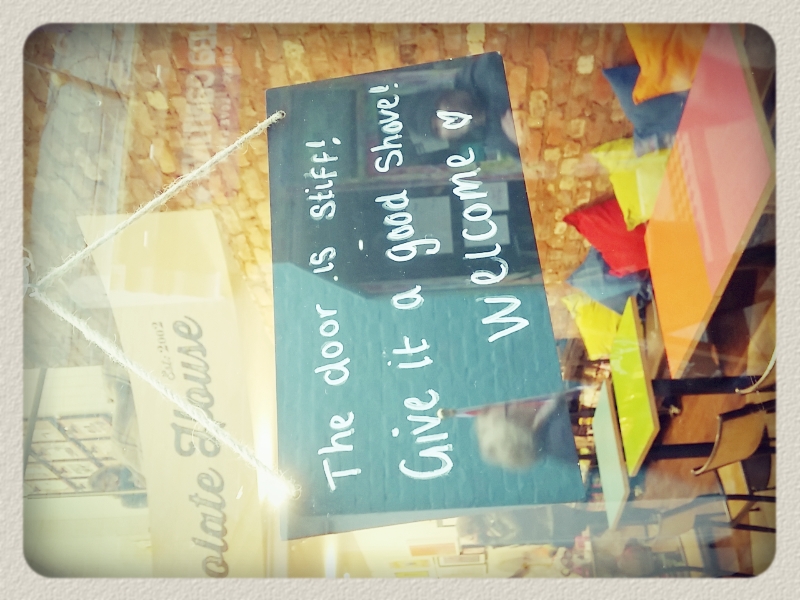 Est. 2002
olate House
The door is stiff!
Give it a good shove!
Welcome